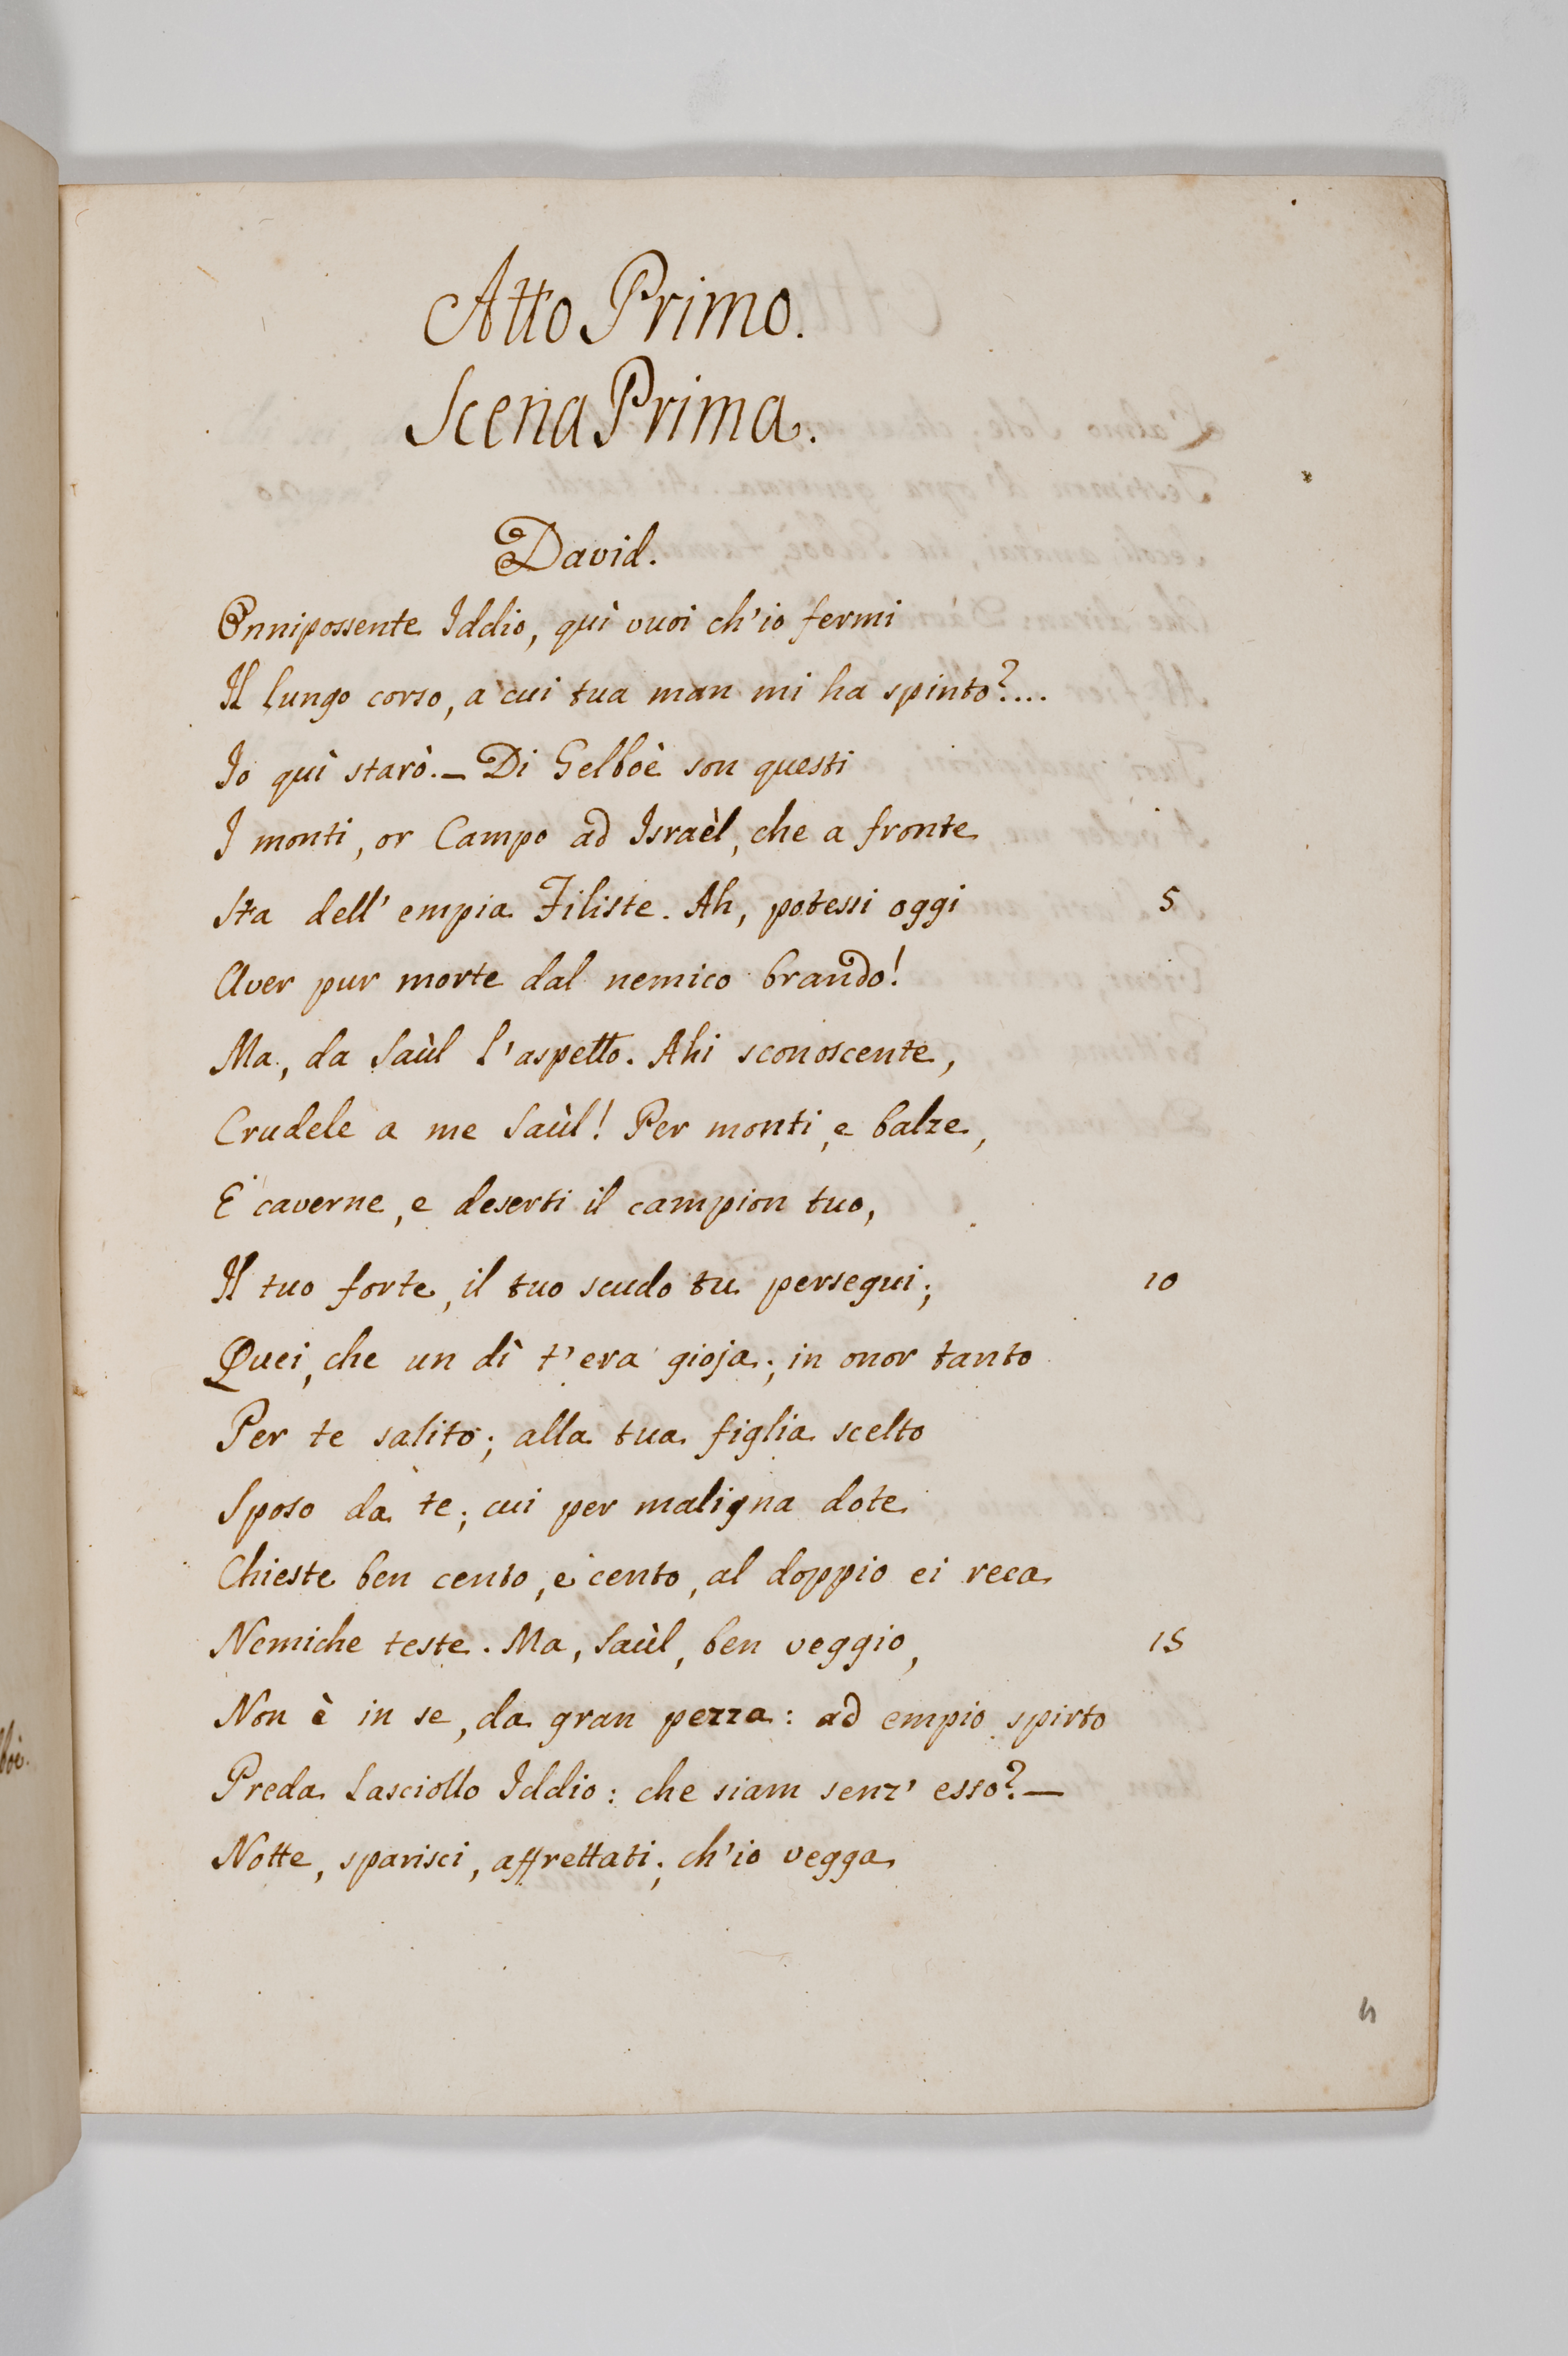 Atto Primo.
Scena Prima.
David.
Onnipossente Iddio, quì vuoi ch'io fermi
Il lungo corso, a cui tua man mi ha spinto?....
Io quì starò. — Di Gelboè son questi
I monti, or Campo ad Israèl, che a fronte
Sta dell' empia Filiste. Ah, potessi oggi 5
Aver pur morte dal nemico brando!
Ma, da Saùl l'aspetto. Ahi sconoscente,
Crudele a me Saùl! Per monti, e balze,
E caverne, e deserti il campion tuo,
Il tuo forte, il tuo scudo tu persegui; 10
Quei, che un dì t'era gioja; in onor tanto
Per te salito; alla tua figlia scelto
Sposo da te; cui per maligna dote
Chieste ben cento, e cento, al doppio ei reca
Nemiche teste. Ma, Saùl, ben veggio, 15
Non è in se, da gran pezza: ad empio spirto
Preda lasciollo Iddio: che siam senz' esso? —
Notte, sparisci, affrettati; ch'io vegga